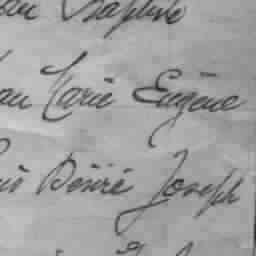 Baptiste
Marie Eugène
Désiré Joseph